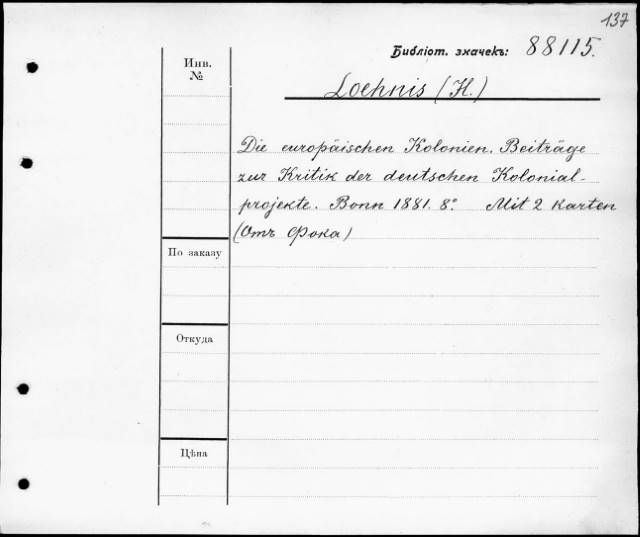 137
Библіот. значекъ: 88115.
Инв.
№
Loehnis (H.)
Die europäischen Kolonien. Beiträge
zur Kritik der deutschen Kolonial-
projekte. Bonn 1881. 8°. Mit 2 Karten
(Отъ Фока)
По заказу
Откуда
Цѣна